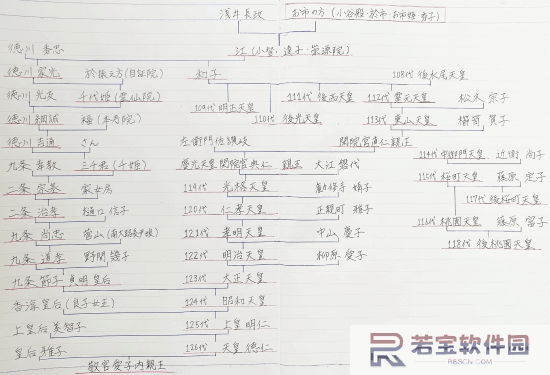 浅井長政 お市の方(小谷殿・於市・お市姫・秀子)
徳川 秀忠 江(小督・達子・崇源院)
徳川 家光 於振之方(自証院) 和子 108代 後水尾天皇
徳川 光友 千代姫(霊仙院) 111代 後西天皇 112代 霊元天皇 松木 宗子
109代 明正天皇 110代 後光天皇
徳川 綱誠 福(本寿院) 113代 東山天皇 櫛笥 賀子
徳川 吉通 さん 左衛門佐讃岐 閑院宮直仁親王
九条 幸教 三千君(千姫) 慶光天皇 閑院宮典仁 親王 大江 磐代 114代 中御門天皇 近衛 尚子
二条 宗基 119代 光格天皇 勧修寺 婧子 115代 桜町天皇 藤原 定子
117代 後桜町天皇
二条 治孝 樋口 信子 120代 仁孝天皇 正親町 雅子 116代 桃園天皇 藤原 富子
九条 尚忠 菅山(南大路長尹娘) 121代 孝明天皇 中山 慶子 118代 後桃園天皇
九条 道孝 野間 幾子 122代 明治天皇 柳原 愛子
九条 節子 貞明 皇后 123代 大正天皇
香淳皇后(良子女王) 124代 昭和天皇
上皇后 美智子 125代 上皇 明仁
皇后 雅子 126代 天皇 徳仁
敬宮愛子内親王
若宝软件园
RBSCN.COM